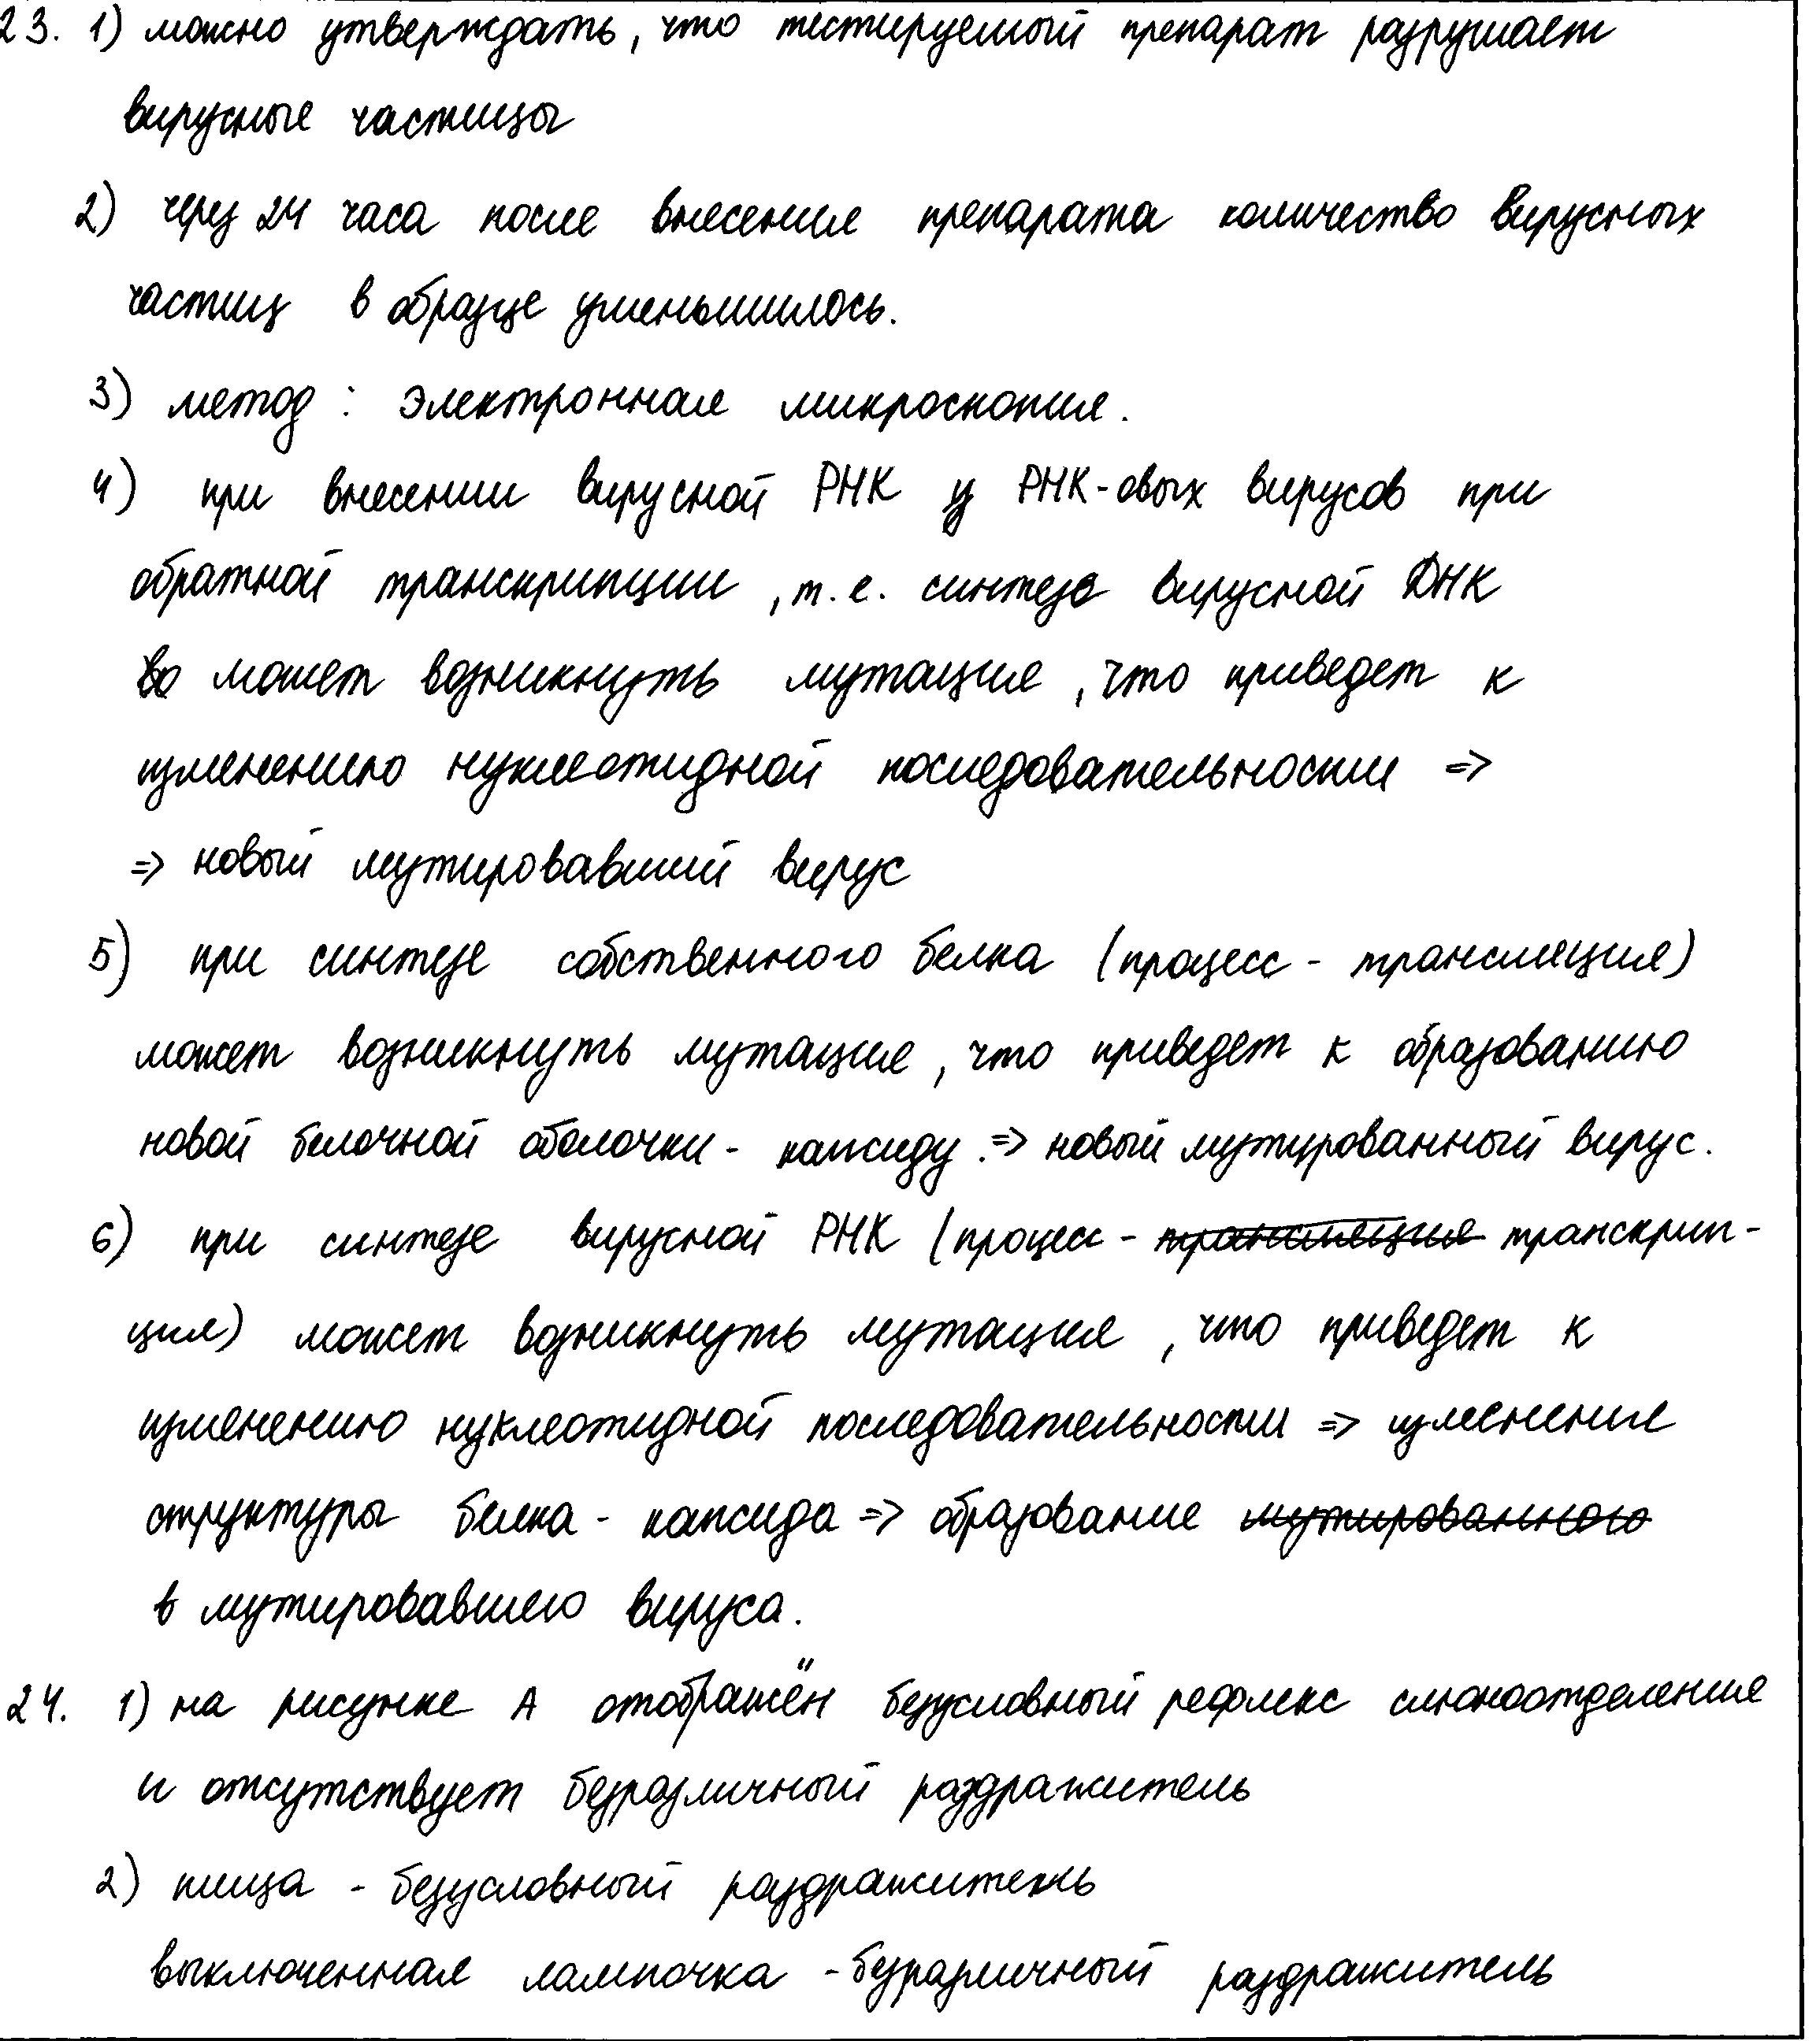 23. 1) можно утверждать, что тестируемый препарат разрушает
вирусные частицы
2) через 24 часа после внесения препарата количество вирусных
частиц в образце уменьшилось.
3) метод: электронная микроскопия.
4) при внесении вирусной РНК у РНК-овых вирусов при
обратной транскрипции, т.е. синтезе вирусной ДНК
во может возникнуть мутация, что приведет к
изменению нуклеотидной последовательности =>
=> новый мутировавший вирус
5) при синтезе собственного белка (процесс - трансляция)
может возникнуть мутация, что приведет к образованию
новой белочной оболочки - капсиду. => новый мутированный вирус.
6) при синтезе вирусной РНК (процесс - трансляция транскрип-
ция) может возникнуть мутация, что приведет к
изменению нуклеотидной последовательности => изменение
структуры белка - капсида => образование мутированного
в мутировавшего вируса.
24. 1) на рисунке А отображён безусловный рефлекс слюноотделение
и отсутствует безразличный раздражитель
2) пища - безусловный раздражитель
выключенная лампочка - безразличный раздражитель